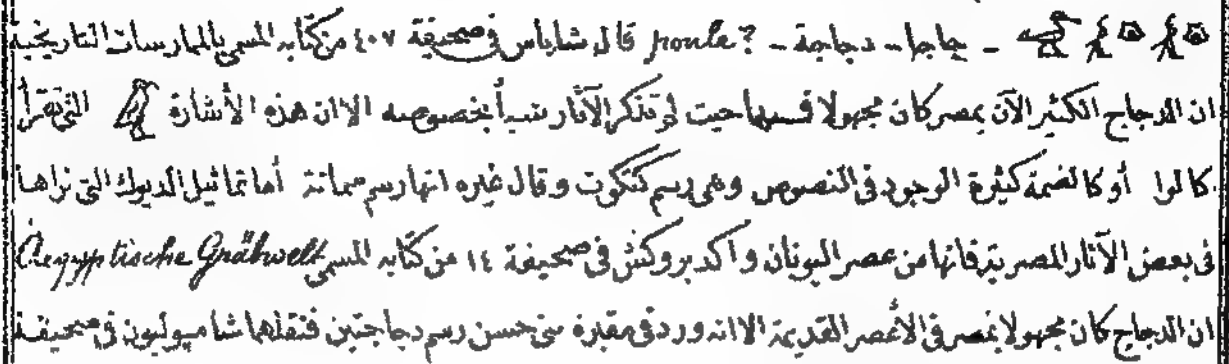 𓎼𓄿𓎼𓄿𓅬 - جاجا - دجاجة - ?poule قال شاباس فى صحيفة ٤٠٧ من كتابه المسمى بالممارسات التاريخية
ان الدجاج الكثير الآن بمصر كان مجهولا قديما حيث لم تذكر الآثار شيأ بخصوصه الا ان هذه الأشارة 𓅱 التى تقرأ
كالوا أو كالضمة كثيرة الوجود فى النصوص وهى رسم كتكوت وقال غيره انها رسم سمانة أما تماثيل الديوك التى نراها
فى بعض الآثار المصرية فانها من عصر اليونان وأكد بروكش فى صحيفة ١٤ من كتابه المسمى Aegyptische Gräbwelt
ان الدجاج كان مجهولا بمصر فى الأعصر القديمة الا انه ورد فى مقبرة بنى حسن رسم دجاجتين فنقلهما شامبوليون فى صحيفة